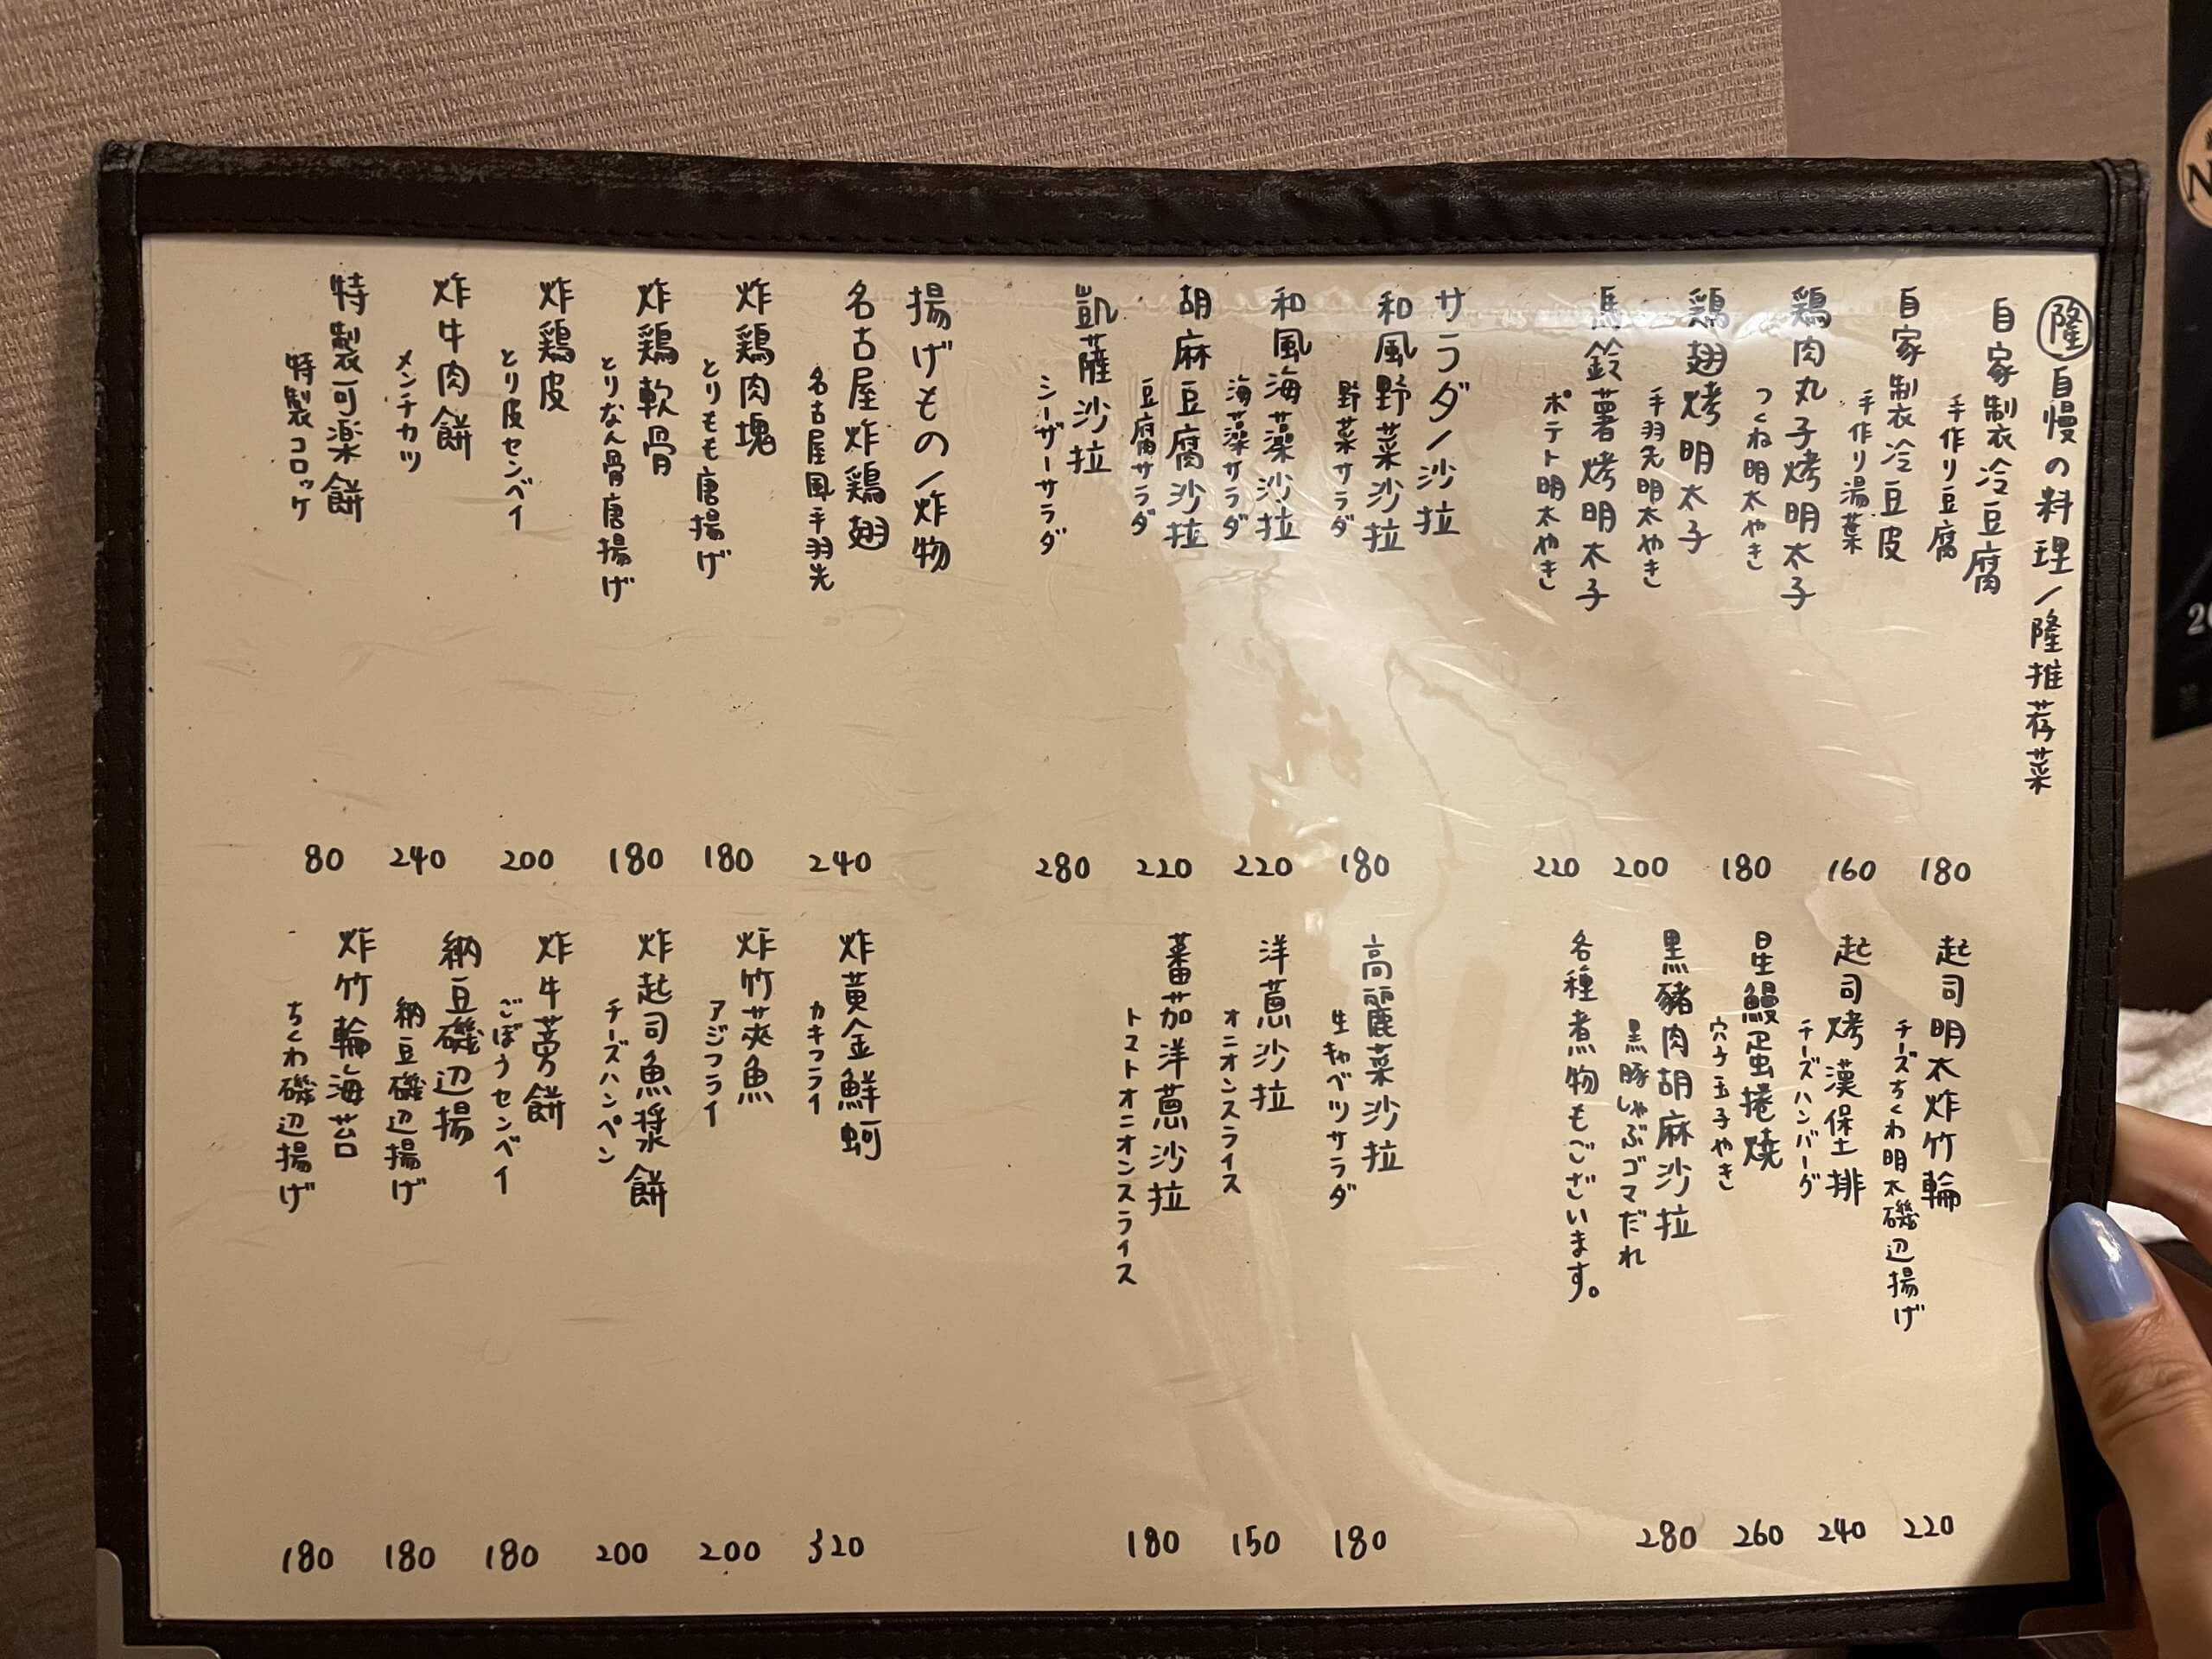 隆自慢の料理/隆推荐菜
自家制衣冷豆腐
手作り豆腐
180
自家制衣冷豆皮
手作り湯葉
160
鶏肉丸子烤明太子
つくね明太やき
180
鶏翅烤明太子
手羽先明太やき
200
馬鈴薯烤明太子
ポテト明太やき
220
起司明太炸竹輪
チーズちくわ明太磯辺揚げ
220
起司烤漢保土排
チーズハンバーグ
240
星鰻蛋捲燒
穴子玉子やき
260
黒豬肉胡麻沙拉
黒豚しゃぶゴマだれ
280
各種煮物もございます。
サラダ/沙拉
和風野菜沙拉
野菜サラダ
180
和風海藻沙拉
海藻サラダ
220
胡麻豆腐沙拉
豆腐サラダ
220
凱薩沙拉
シーザーサラダ
280
高麗菜沙拉
生キャベツサラダ
180
洋蔥沙拉
オニオンスライス
150
蕃茄洋蔥沙拉
トマトオニオンスライス
180
揚げもの/炸物
名古屋炸鶏翅
名古屋風手羽先
240
炸鶏肉塊
とりもも唐揚げ
180
炸鶏軟骨
とりなん骨唐揚げ
180
炸鶏皮
とり皮センベイ
200
炸牛肉餅
メンチカツ
240
特製可楽餅
特製コロッケ
80
炸黄金鮮蚵
カキフライ
320
炸竹莢魚
アジフライ
200
炸起司魚漿餅
チーズハンペン
200
炸牛蒡餅
ごぼうセンベイ
180
納豆磯辺揚
納豆磯辺揚げ
180
炸竹輪海苔
ちくわ磯辺揚げ
180